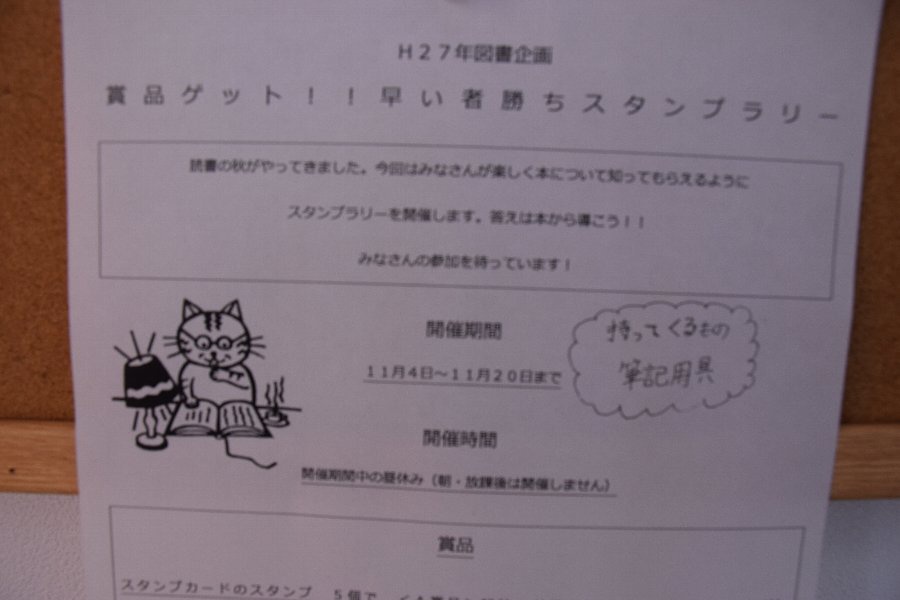 H27年図書企画
賞品ゲット！！早い者勝ちスタンプラリー
読書の秋がやってきました。今回はみなさんが楽しく本について知ってもらえるように
スタンプラリーを開催します。答えは本から導こう！！
みなさんの参加を待っています！
開催期間
11月4日～11月20日まで
持ってくるもの
筆記用具
開催時間
開催期間中の昼休み（朝・放課後は開催しません）
賞品
スタンプカードのスタンプ 5個で